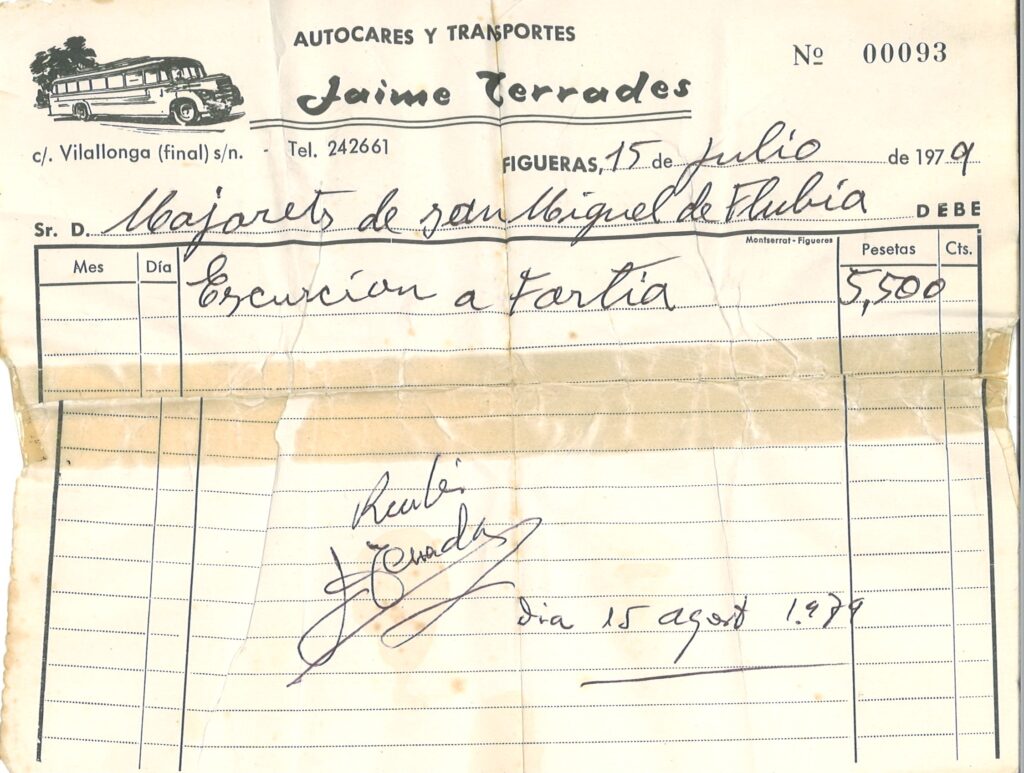 AUTOCARES Y TRANSPORTES
Nº 00093
Jaime Terrades
c/. Vilallonga (final) s/n. - Tel. 242661
FIGUERAS, 15 de julio de 1979
Sr. D. Majorets de san Miguel de Flubia DEBE
Montserrat - Figueres
Mes Día Pesetas Cts.
Escurcion a Fortia 5,500
J Terrades
Dia 15 agost 1.979